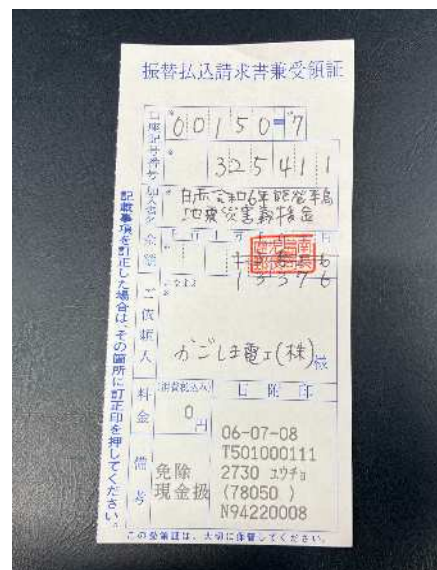 振替払込請求書兼受領証
口座記号番号
00150=7
325411
加入者名
日赤令和6年能登半島
地震災害義援金
金額
千百十万千百十円
13376
ご依頼人
かごしま電工(株)様
料金
(消費税込み)
0円
日附印
06-07-08
T501000111
備考
免除
2730 ユウチョ
現金扱
(78050 )
N94220008
記載事項を訂正した場合は、その箇所に訂正印を押してください。
この受領証は、大切に保管してください。